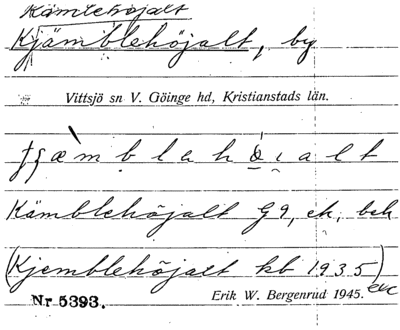 Kämblehöjalt
Kjämblehöjalt, by
Vittsjö sn V. Göinge hd, Kristianstads län.
Kämblehöjalt G9, ek, bek
(Kjemblehöjalt kb 1935)
Nr 5393. Erik W. Bergenrud 1945.